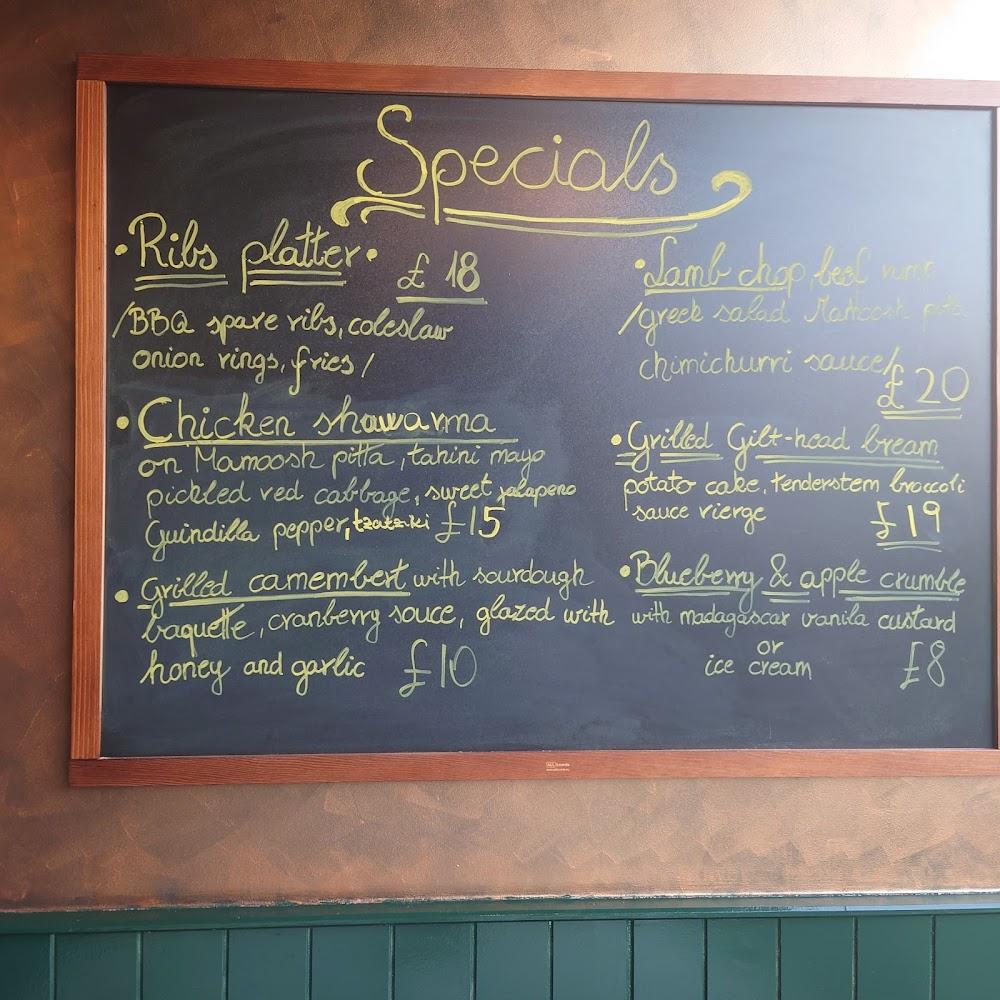 Specials
• Ribs platter • £ 18
/BBQ spare ribs, coleslaw
onion rings, fries /
• Chicken shawarma
on Mamoosh pitta, tahini mayo
pickled red cabbage, sweet jalapeno
Guindilla pepper, tzatziki £15
• Grilled camembert with sourdough
baquette, cranberry souce, glazed with
honey and garlic £10
• Lamb chop, beef rump
/greek salad Mamoosh pitta
chimichurri sauce/
£ 20
• Grilled Gilt-head bream
potato cake, tenderstem broccoli
sauce vierge £19
• Blueberry & apple crumble
with madagascar vanila custard
or
ice cream £8